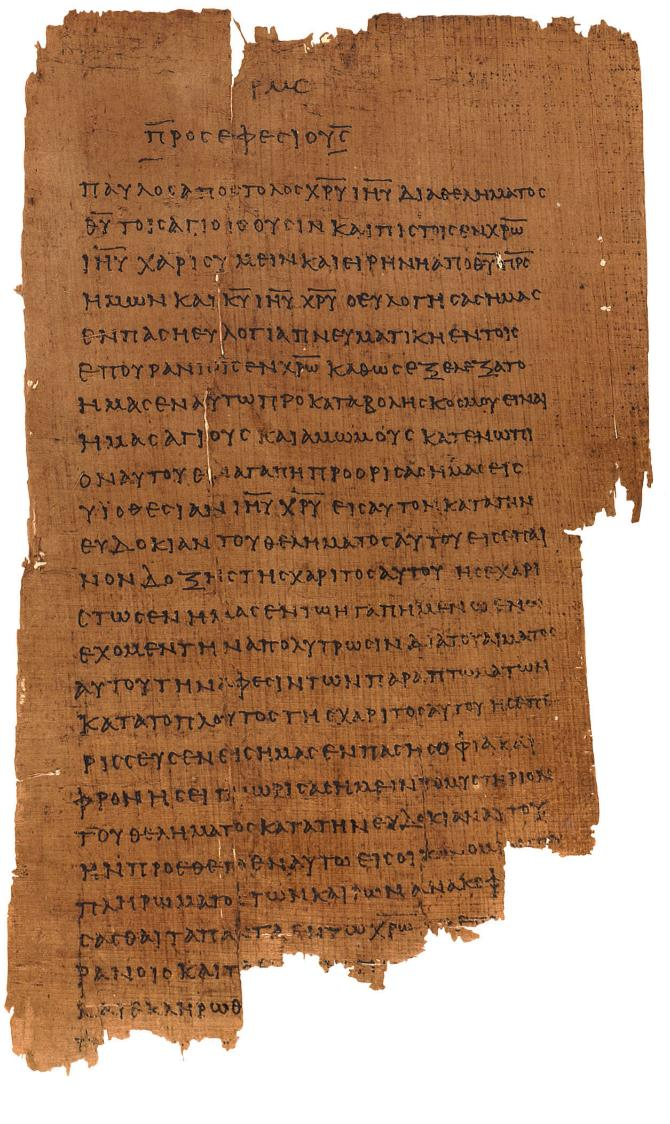 ΡΜϚ
Π̅ΡΟϹΕΦΕϹΙΟΥϹ̅
ΠΑΥΛΟϹΑΠΟϹΤΟΛΟϹΧ̅Ρ̅Υ̅Ι̅Η̅Υ̅ΔΙΑΘΕΛΗΜΑΤΟϹ
Θ̅Υ̅ΤΟΙϹΑΓΙΟΙϹΟΥϹΙΝΚΑΙΠΙϹΤΟΙϹΕΝΧ̅Ρ̅Ω̅
Ι̅Η̅Υ̅ΧΑΡΙϹΥΜΕΙΝΚΑΙΕΙΡΗΝΗΑΠΟΘ̅Υ̅Π̅Ρ̅Ϲ̅
ΗΜΩΝΚΑΙΚ̅Υ̅Ι̅Η̅Υ̅Χ̅Ρ̅Υ̅ΟΕΥΛΟΓΗϹΑϹΗΜΑϹ
ΕΝΠΑϹΗΕΥΛΟΓΙΑΠΝΕΥΜΑΤΙΚΗΕΝΤΟΙϹ
ΕΠΟΥΡΑΝΙΟΙϹΕΝΧ̅Ρ̅Ω̅ΚΑΘΩϹΕΞΕΛΕΞΑΤΟ
ΗΜΑϹΕΝΑΥΤΩΠΡΟΚΑΤΑΒΟΛΗϹΚΟϹΜΟΥΕΙΝΑΙ
ΗΜΑϹΑΓΙΟΥϹΚΑΙΑΜΩΜΟΥϹΚΑΤΕΝΩΠΙ
ΟΝΑΥΤΟΥΕΝΑΓΑΠΗΠΡΟΟΡΙϹΑϹΗΜΑϹΕΙϹ
ΥΪΟΘΕϹΙΑΝΙ̅Η̅Υ̅Χ̅Ρ̅Υ̅ΕΙϹΑΥΤΟΝΚΑΤΑΤΗΝ
ΕΥΔΟΚΙΑΝΤΟΥΘΕΛΗΜΑΤΟϹΑΥΤΟΥΕΙϹΕΠΑΙ
ΝΟΝΔΟΞΗϹΤΗϹΧΑΡΙΤΟϹΑΥΤΟΥΗϹΕΧΑΡΙ
ϹΤΩϹΕΝΗΜΑϹΕΝΤΩΗΓΑΠΗΜΕΝΩΕΝΩ
ΕΧΟΜΕΝΤΗΝΑΠΟΛΥΤΡΩϹΙΝΔΙΑΤΟΥΑΙΜΑΤΟϹ
ΑΥΤΟΥΤΗΝΑΦΕϹΙΝΤΩΝΠΑΡΑΠΤΩΜΑΤΩΝ
ΚΑΤΑΤΟΠΛΟΥΤΟϹΤΗϹΧΑΡΙΤΟϹΑΥΤΟΥΗϹΕΠΕ
ΡΙϹϹΕΥϹΕΝΕΙϹΗΜΑϹΕΝΠΑϹΗϹΟΦΙΑΚΑΙ
ΦΡΟΝΗϹΕΙΓΝΩΡΙϹΑϹΗΜΕΙΝΤΟΜΥϹΤΗΡΙΟΝ
ΤΟΥΘΕΛΗΜΑΤΟϹΚΑΤΑΤΗΝΕΥΔΟΚΙΑΝΑΥΤΟΥ
ΗΝΠΡΟΕΘΕΤΟΕΝΑΥΤΩΕΙϹΟΙΚΟΝΟΜ
ΠΛΗΡΩΜΑΤΟϹΤΩΝΚΑΙΡΩΝΑΝΑΚΕΦ
ϹΑϹΘΑΙΤΑΠΑΝΤΑΕΝΤΩΧ̅Ρ̅Ω̅
ΡΑΝΟΙϹΚΑΙΤΑ
ΚΑΙΕΚΛΗΡΩΘ